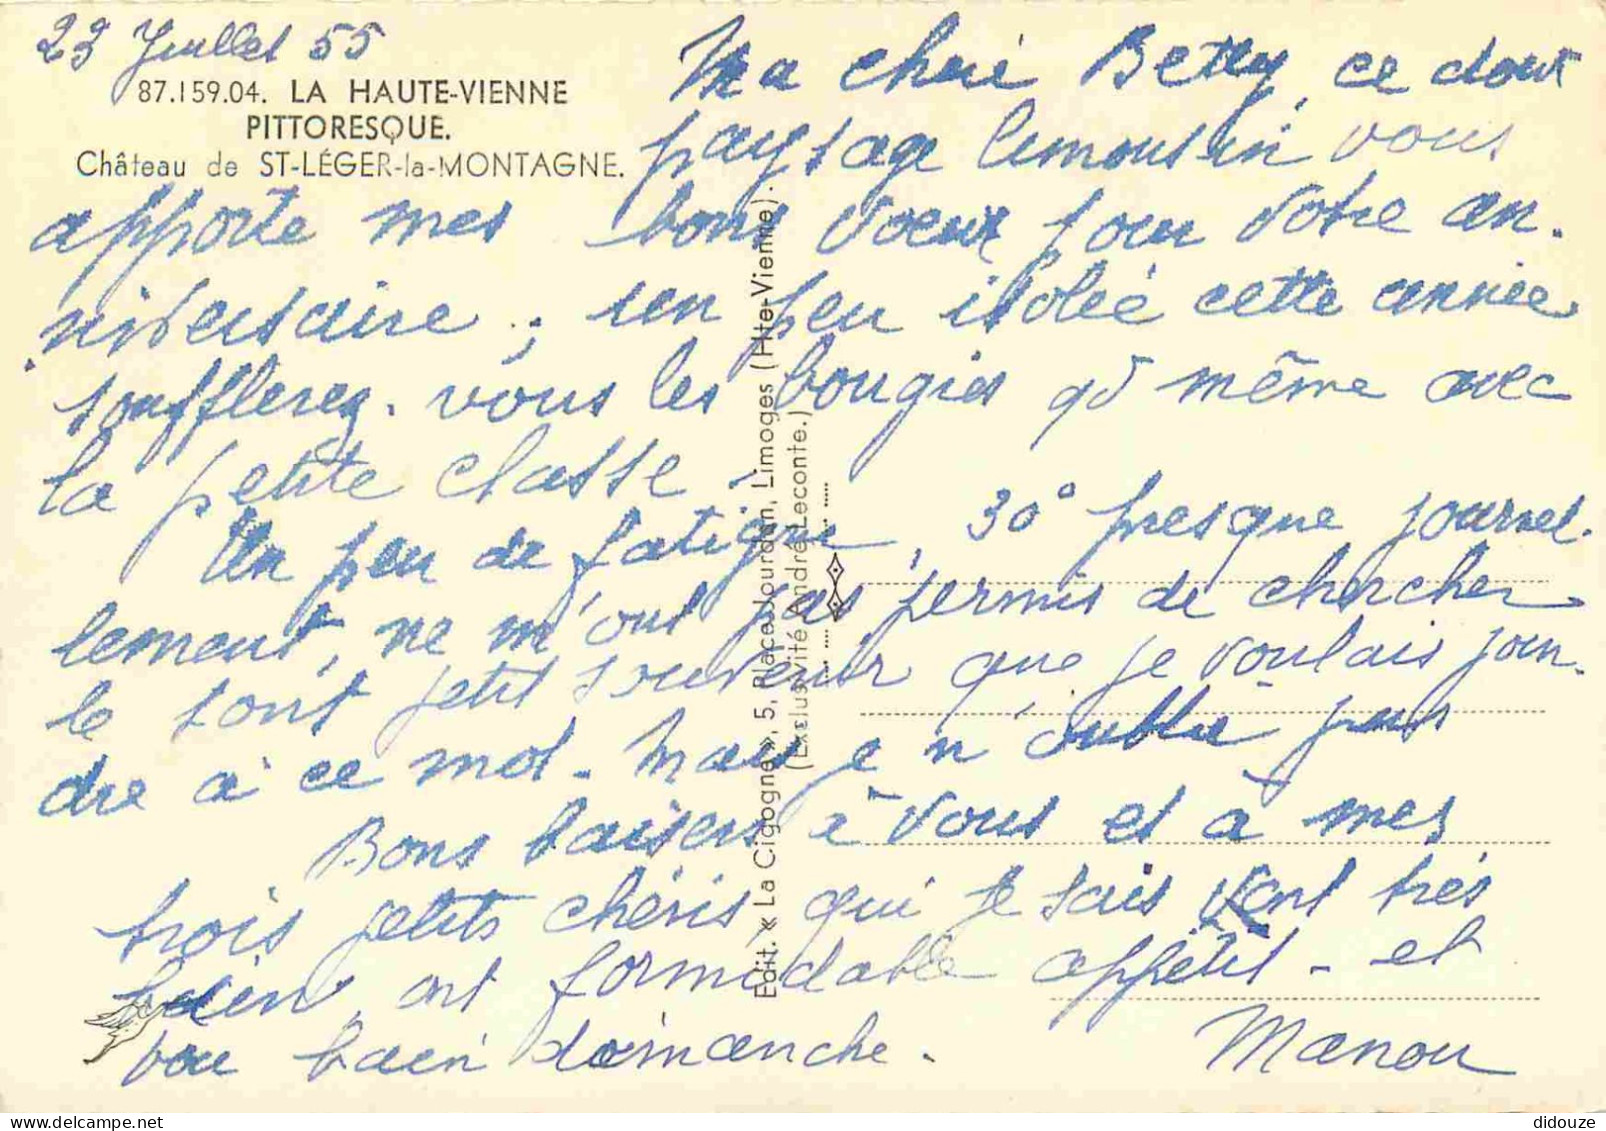 23 Juillet 55
87.159.04. LA HAUTE-VIENNE
PITTORESQUE.
Château de ST-LÉGER-la-MONTAGNE.
Ma cheri Betty, ce doux
paysage limousin vous
apporte mes bons voeux pour votre an-
niversaire ; un peu isolée cette année
soufflerez-vous les bougies qd même avec
la petite classe -
Un peu de fatigue, 30° presque journel-
lement, ne m'ont pas permis de chercher
le tout petit souvenir que je voulais join-
dre à ce mot - Mais je n'oublie pas
Bons baisers à vous et à mes
trois petits chéris qui je sais vont très
bien, ont formidable appétit - et
bon bain dimanche.
Manou
Edit. « La Cigogne », 5, Place Jourdan, Limoges (Hte-Vienne).
(Exclusivité André Leconte.)
didouze